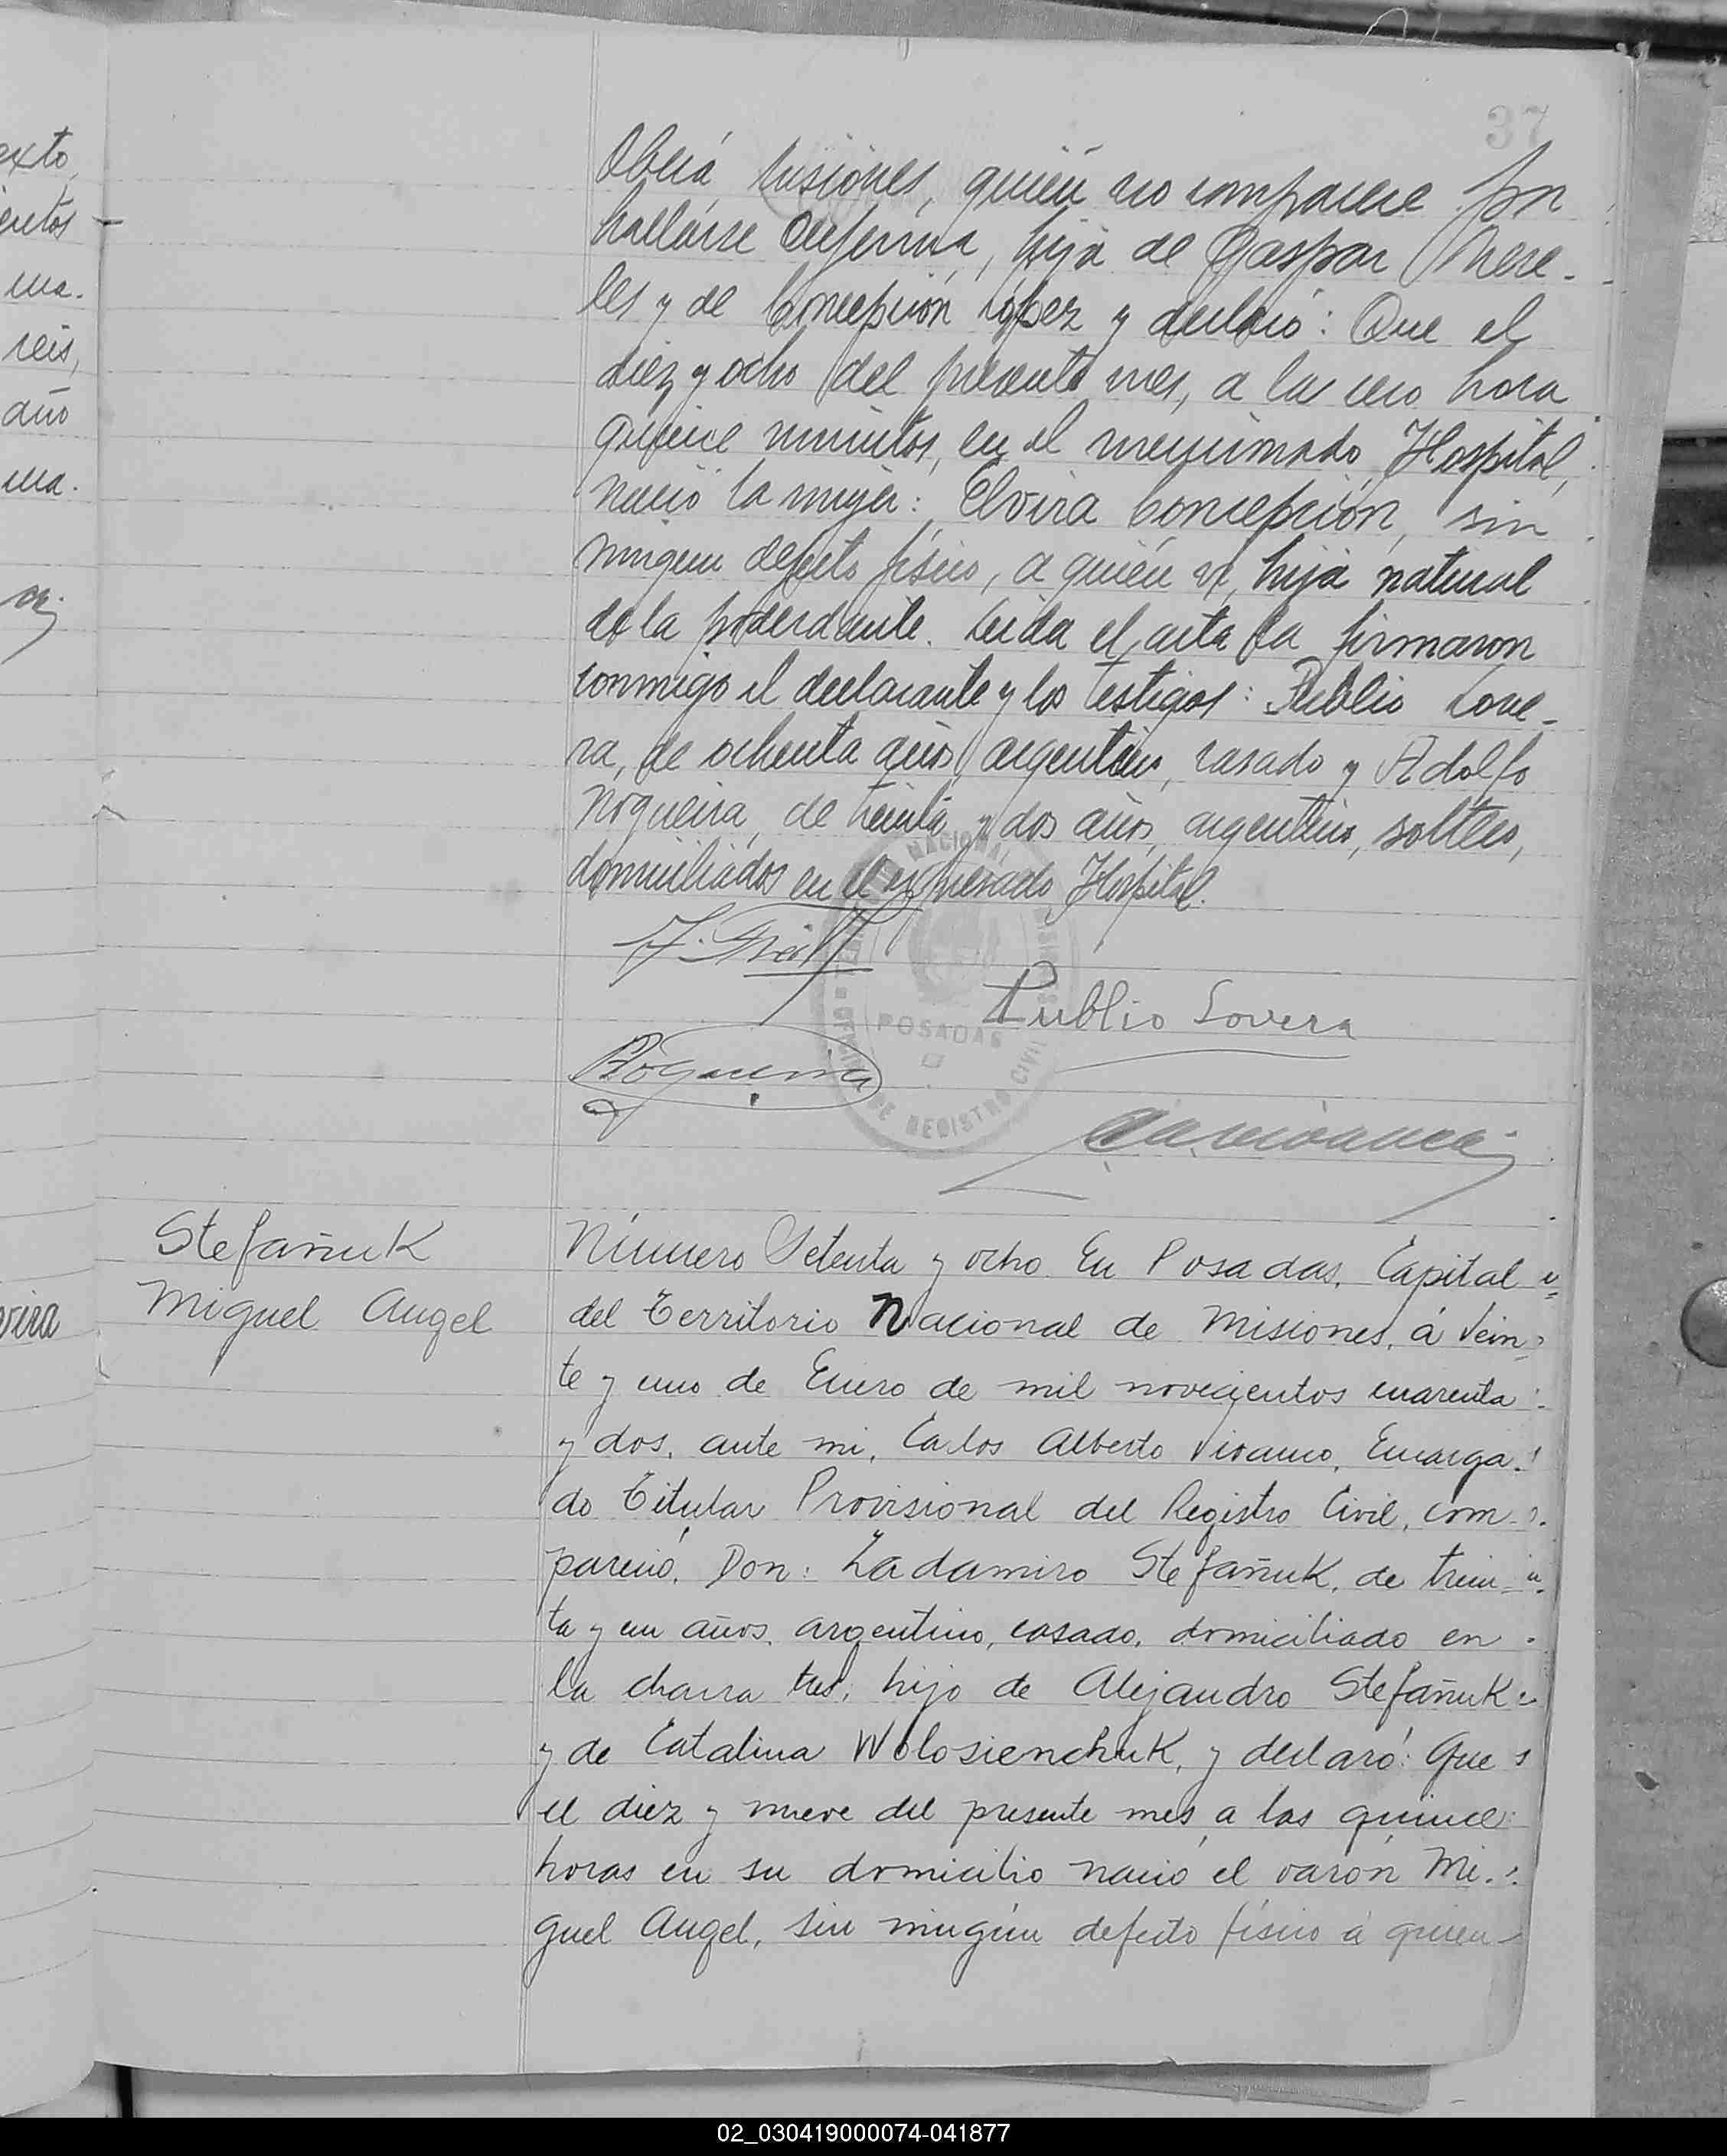 37
exto,
entos
ma.
seis,
año
ma.
Oberá, Misiones, quién no comparece por
hallarse enferma, hija de Gaspar Mere-
les y de Concepción López y declaró: Que el
diez y ocho del presente mes, a las cero hora
quince minutos, en el mencionado Hospital,
nació la mujer: Elvira Concepción, sin
ningun defecto físico, a quién vi, hija natural
de la poderdante. Leída el acta la firmaron
conmigo el declarante y los testigos: Publio Love-
ra, de ochenta años, argentino, casado y Adolfo
Nogueira, de treinta y dos años, argentino, soltero,
domiciliados en el expresado Hospital.
Publio Lovera
POSADAS
Nogueira
vira
Stefañuk
Miguel Angel
Número Setenta y ocho. En Posadas, Capital
del Territorio Nacional de Misiones, á vein-
te y uno de Enero de mil novecientos cuarenta
y dos, ante mi, Carlos Alberto Vivanco, Encarga-
do Titular Provisional del Registro Civil, com-
pareció, Don: Ladamiro Stefañuk, de trein-
ta y un años, argentino, casado, domiciliado en
la chacra tres, hijo de Alejandro Stefañuk
y de Catalina Wolosienchuk, y declaró: Que
el diez y nueve del presente mes, a las quince
horas en su domicilio nació el varón Mi-
guel Angel, sin ningún defecto físico á quien
02_030419000074-041877